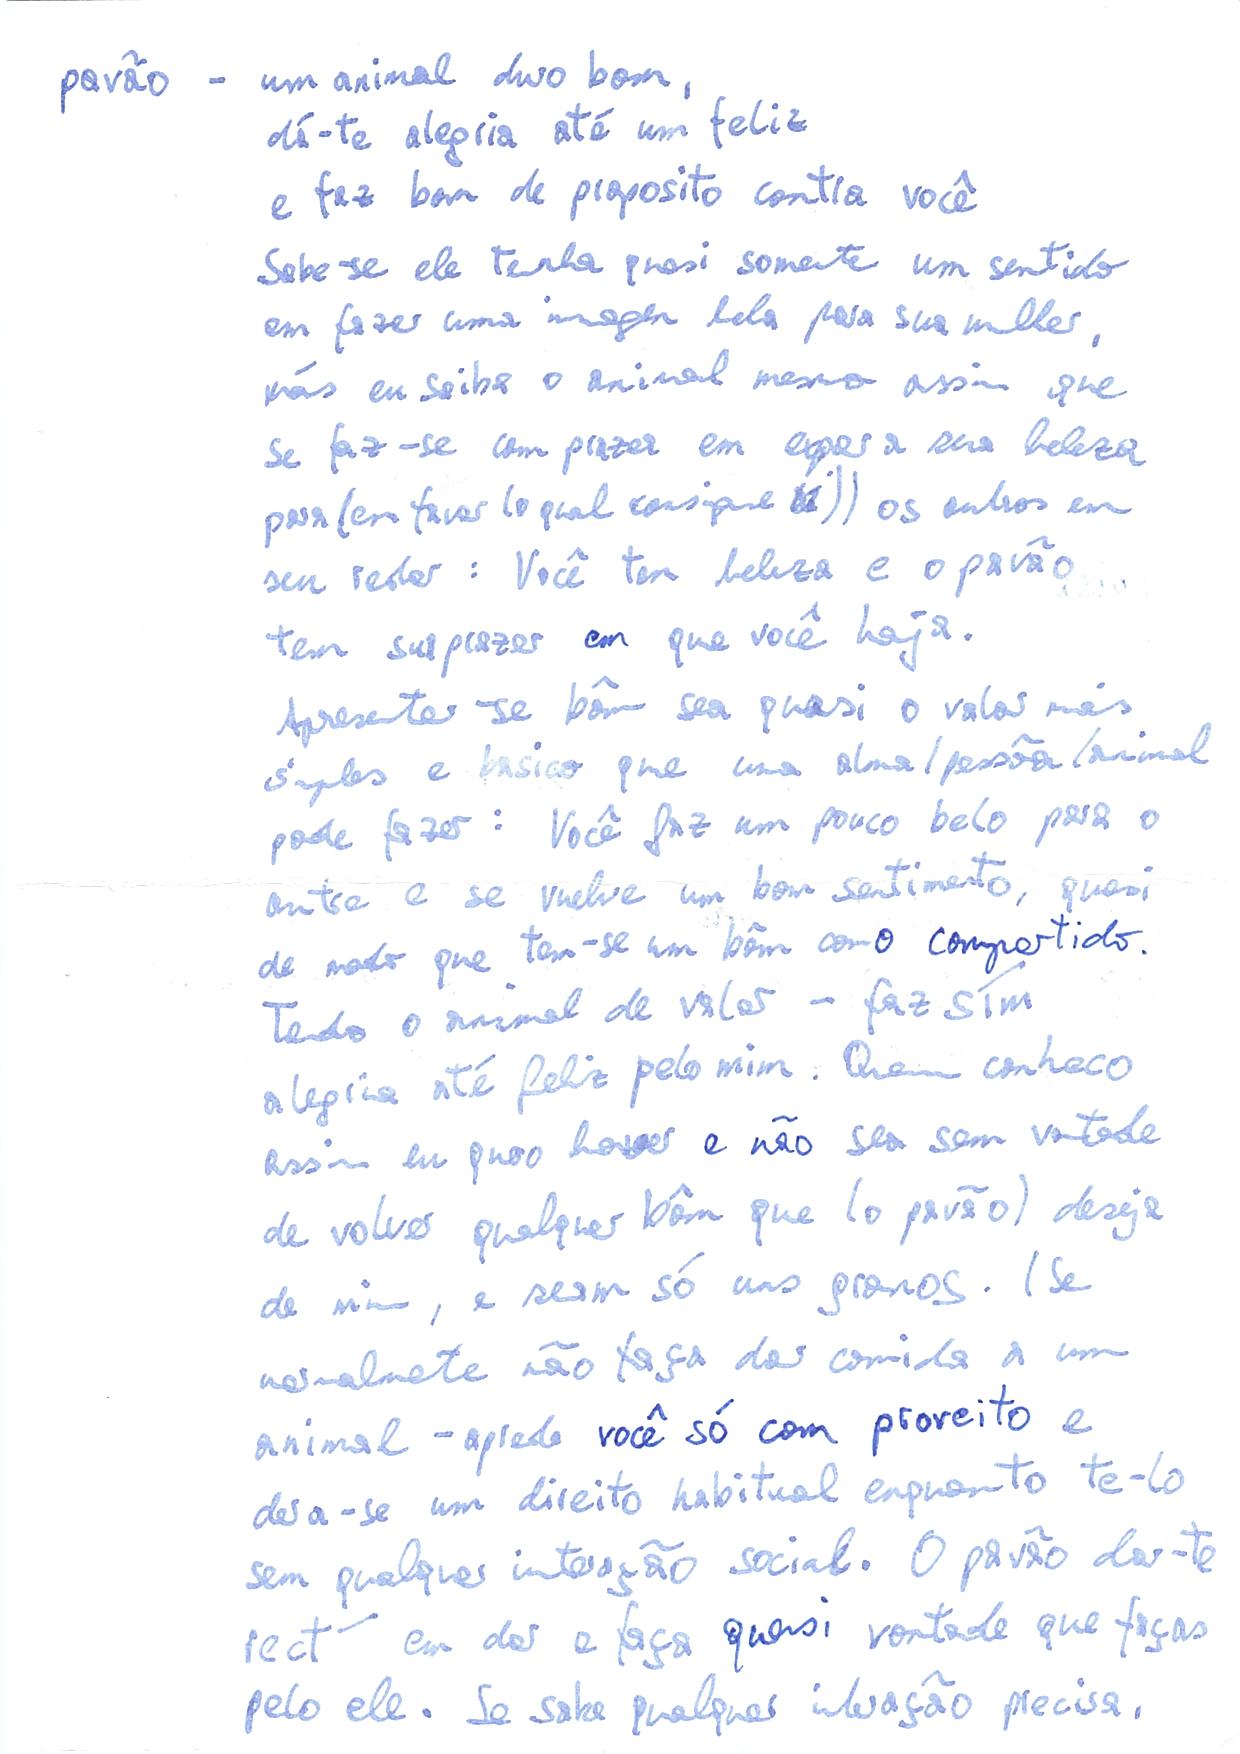 pavão - um animal duro bom,
dá-te alegria até um feliz
e faz bom de proposito contra você
Sabe-se ele tenha quasi somente um sentido
em fazer uma imagen bela para sua mulher,
más eu saiba o animal mesmo assim que
se faz-se com prazer em expor a sua beleza
para (em favor (o qual consigue)) os outros em
seu redor : Você tem beleza e o pavão
tem su prazer em que você haja.
Apresentar-se bôm sea quasi o valor más
simples e basico que uma alma/pessõa/animal
pode fazer : Você faz um pouco belo para o
outro e se vuelve um bom sentimento, quasi
de modo que tem-se um bôm como compartido.
Tendo o animal de valor - faz sím
alegria até feliz pelo mim. Quem conheco
assim eu quero haver e não sea sem vontade
de volver qualquer bôm que (o pavão) deseja
de mim, e seam só uns granos. (Se
normalmete não faça dar comida a um
animal - aprede você só com proveito e
dera-se um direito habitual enquanto te-lo
sem qualquer interação social. O pavão dar-te
rect em dar e faça quasi vontade que faças
pelo ele. Se sabe qualquer interação precisa.